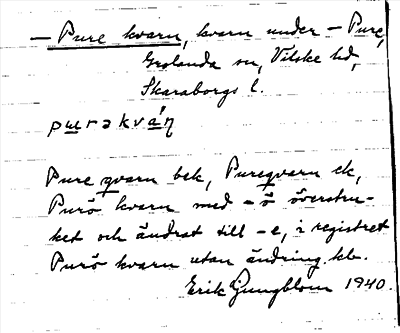 — Pure kvarn, kvarn under — Pure,
Grolanda sn, Vilske hd,
Skaraborgs l.
purəkvá́ɳ
Pure qvarn bek, Pureqvarn ek,
Purö kvarn med -ö överstru-
ket och ändrat till -e, i registret
Purö kvarn utan ändring. kb.
Erik Ljungblom 1940.